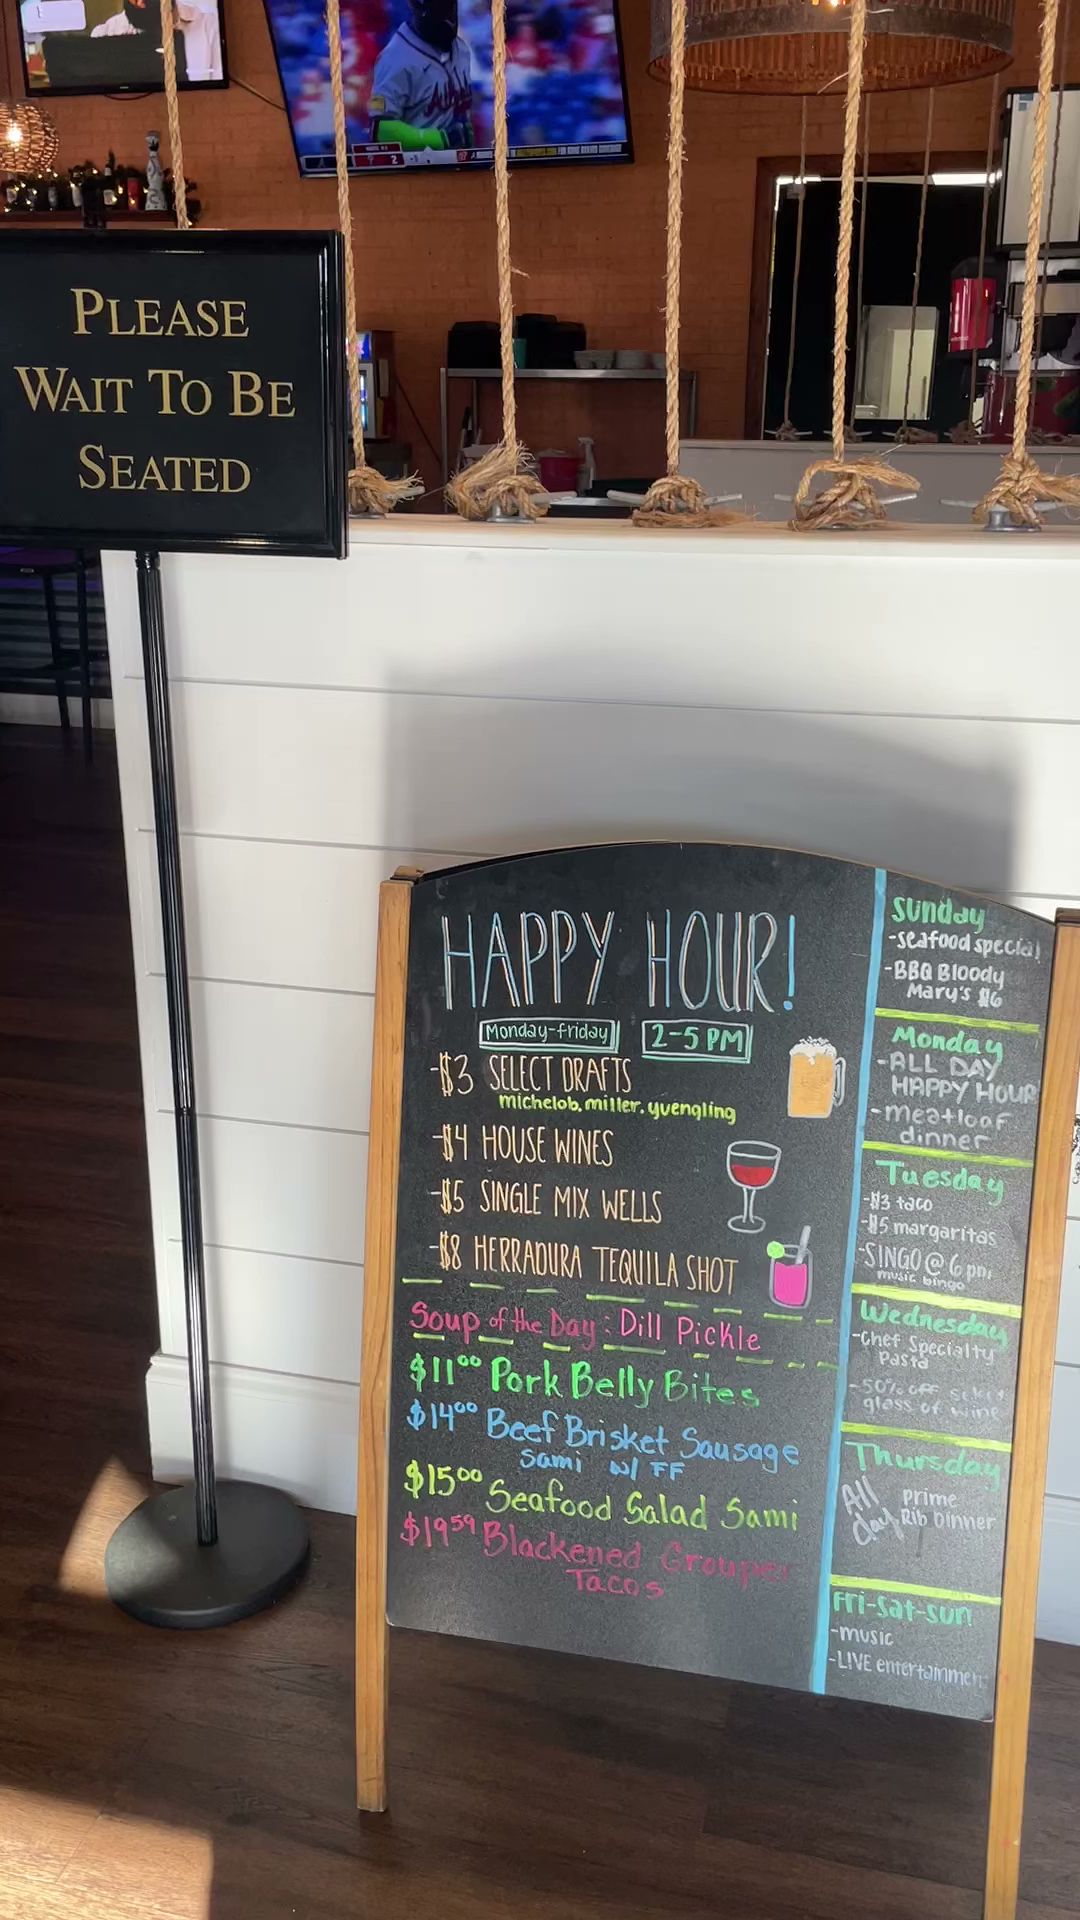 PLEASE
WAIT TO BE
SEATED
HAPPY HOUR!
Monday-friday 2-5 PM
-$3 SELECT DRAFTS
michelob, miller, yuengling
-$4 HOUSE WINES
-$5 SINGLE MIX WELLS
-$8 HERRADURA TEQUILA SHOT
Soup of the Day: Dill Pickle
$11⁰⁰ Pork Belly Bites
$14⁰⁰ Beef Brisket Sausage
Sami w/ FF
$15⁰⁰ Seafood Salad Sami
$19⁵⁹ Blackened Grouper
Tacos
Sunday
-seafood special
-BBQ Bloody
Mary's $6
Monday
-ALL DAY
HAPPY HOUR
-meatloaf
dinner
Tuesday
-$3 taco
-$5 margaritas
-SINGO @ 6 pm
music bingo
Wednesday
-Chef Specialty
Pasta
-50% off select
glass of wine
Thursday
All day
prime
Rib Dinner
Fri-sat-sun
-music
-LIVE entertainment